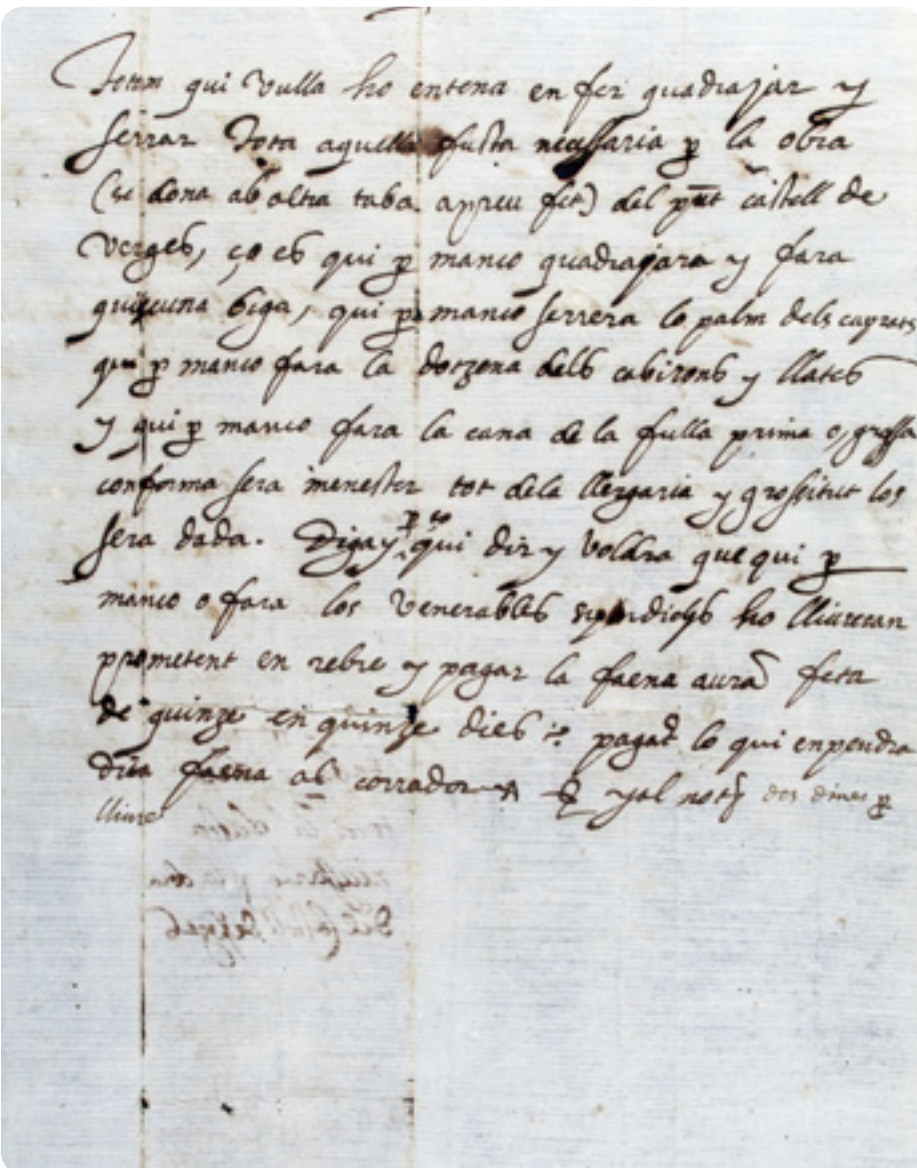 Totom qui vulla ho entena en fer quadrajar y
serrar tota aquella fusta necessaria p la obra
(se dona ab altra taba a preu fet) del pnt castell de
Verges, ço es qui p manco quadrajara y fara
quiscuna biga, qui p manco serrera lo palm dels
qui p manco fara la dotzena dels cabirons y llates
y qui p manco fara la cana de la fulla prima o, grossa
conforma sera menester tot dela llergaria y grossitut los
sera dada. Digay p ço qui dir y voldra que qui p
manco o fara los venerables syndichs ho lliureran
prometent en rebre y pagar la faena aura feta
de quinze en quinze dies pagat lo qui enpendra
dita faena al corrador y al not dos dines p
lliure